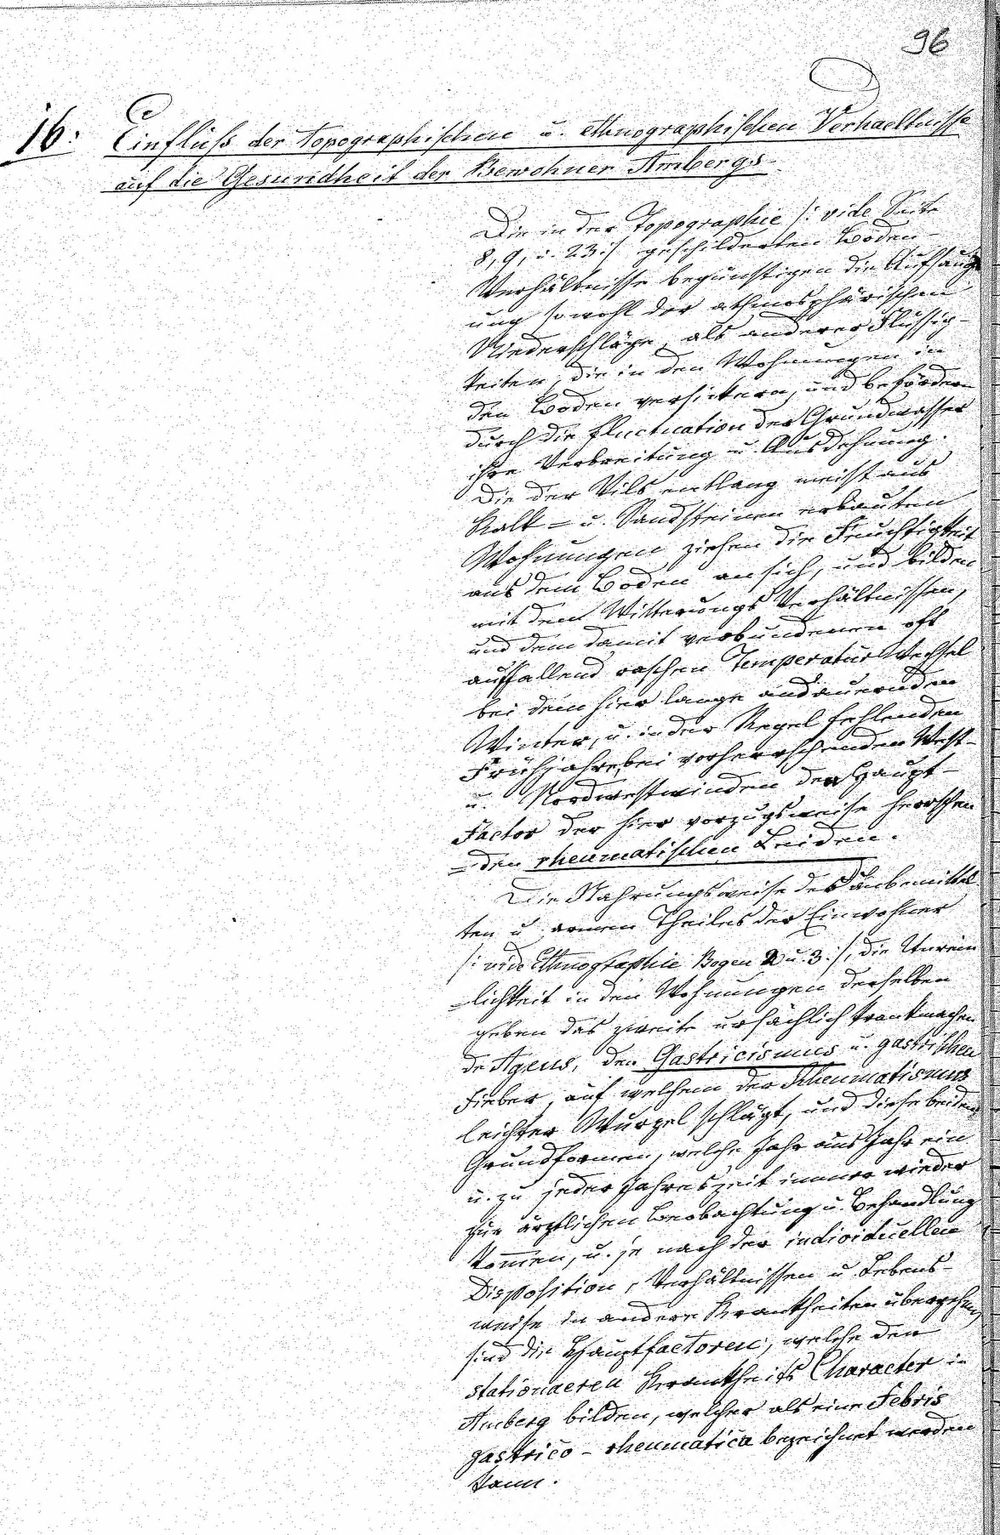 96
16: Einfluß der topographischen u. ethnographischen Verhaeltnisse
auf die Gesundheit der Bewohner Ambergs.
Die in der Topographie /: vide Seite
8, 9, u. 23 :/ geschilderten Boden-
Verhältnisse begünstigen die Aufsaug-
ung sowohl der athmosphärischen
Niederschläge, als anderer Flüssig-
keiten, die in den Wohnungen in
den Boden versickern, und befördern
durch die Fluctuation des Grundwassers
ihre Verbreitung u. Ausdehnung.
Die der Vils entlang meist aus
Kalk- u. Sandsteinen erbauten
Wohnungen ziehen die Feuchtigkeit
aus dem Boden an sich, und bilden
mit den Witterungs Verhältnissen,
und dem damit verbundenen oft
auffallend raschen Temperatur Wechsel
bei dem hier lange andauernden
Winter, u. in der Regel fehlenden
Frühjahre, bei vorherrschenden West-
u. Nordwestwinden den Haupt-
Factor der hier vorzugsweise herrschen
=den rheumatischen Leiden.
Die Nahrungsweise des unbemittel
ten u. armen Theiles der Einwohner
/: vide Ethnographie Bogen 2 u. 3 :/, die Unrein
=lichkeit in den Wohnungen derselben
geben das zweite ursächlich krankmachen
de Agens, den Gastricismus u. gastrischen
Fieber, auf welchem der Rheumatismus
leichter Wurzel schlägt, und diese beiden
Grundformen, welche Jahr aus Jahr ein
u. zu jeder Jahreszeit immer wieder
zur ärztlichen Beobachtung u. Behandlung
kommen, u. je nach der individuellen
Disposition, Verhältnissen u. Lebens-
weise in andere Krankheiten übergehen,
sind die Hauptfactoren, welche den
stationaeren Krankheits Character in
Amberg bilden, welcher als eine Febris
gastrico-rheumatica bezeichnet werden
kann.